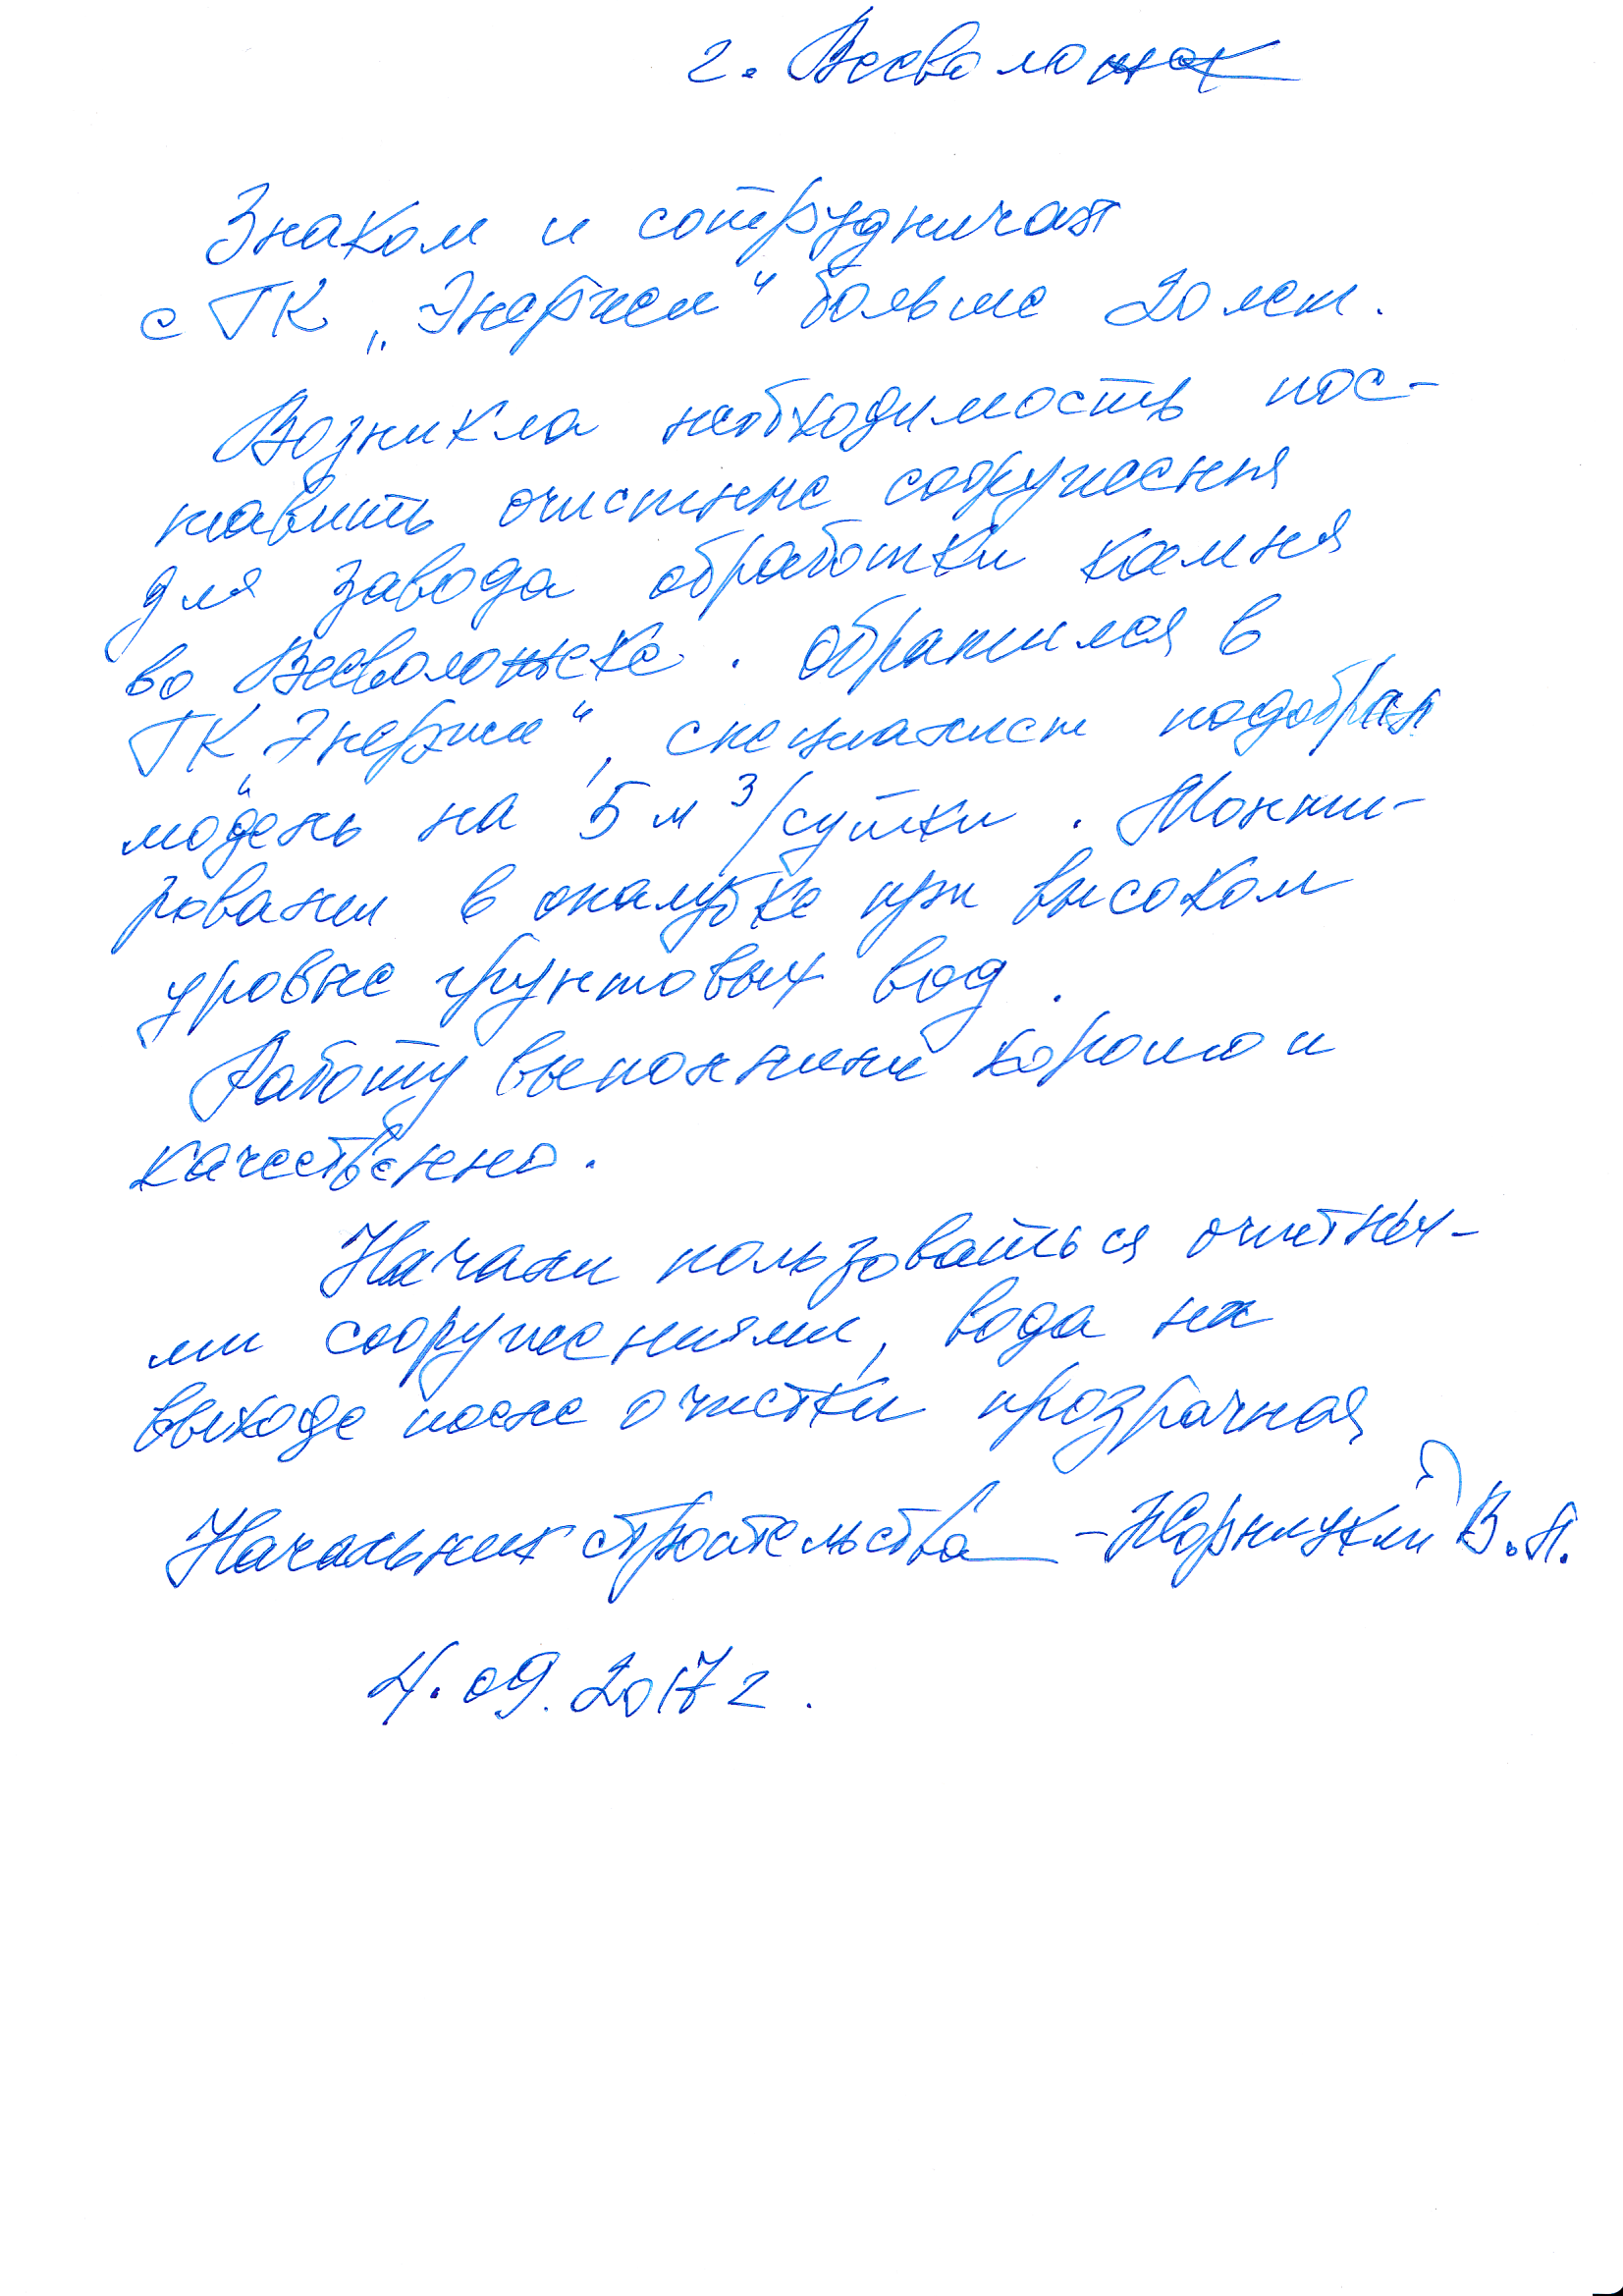 г. Всеволожск
Знаком и сотрудничал
с ГК „Энерджи" больше 20 лет.
Возникла необходимость пос-
тавить очистные сооружения
для завода обработки камня
во Всеволожске. Обратился в
ГК „Энерджи", специалист подобрал
модель на 5 м³/сутки. Монти-
ровали в опалубке при высоком
уровне грунтовых вод.
Работу выполнили хорошо и
качественно.
Начали пользоваться очистны-
ми сооружениями, вода на
выходе после очистки прозрачная
Начальник строительства - В.П.
4.09.2017 г.